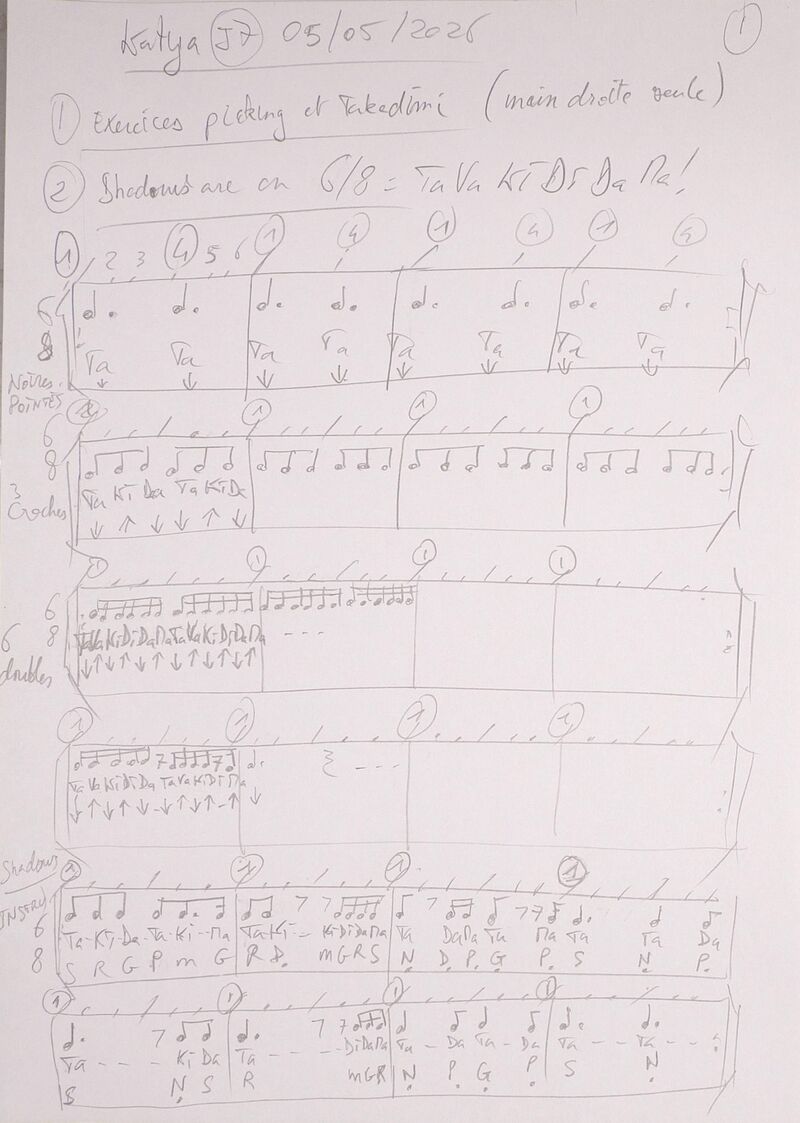 Katya J7 05/05/2026 1
1 Exercices picking et Takadimi (main droite seule)
2 Shadows are on 6/8 = Ta Va Ki Di Da Ma!
1 2 3 4 5 6 1 4 1 4 1 4
6
8
Ta Ta Ta Ta Ta Ta Ta Ta
Noires
Pointés
1 1 1 1
6
8
3
Croches
Ta Ki Da Ta Ki Da
1 1 1 1
6
8
6
doubles
Ta Va Ki Di Da Ma Ta Va Ki Di Da Ma - - -
1 1 1 1
Ta Va Ki Di Da Ta Va Ki Di Ma - - -
Shadows
1 1 1 1
6
8
Ta-Ki-Da-Ta-Ki--Ma Ta-Ki-- Ki Di Da Ma Ta Da Ma Ta Ma Ta Ta Da
S R G P m G R D m G R S N D P G P S N P
1 1 1 1
Ta - - - - Ki Da Ta - - - - Di Da Ma Ta - Da Ta - Da Ta - - Ta - -
S N S R m G R N P G P S N